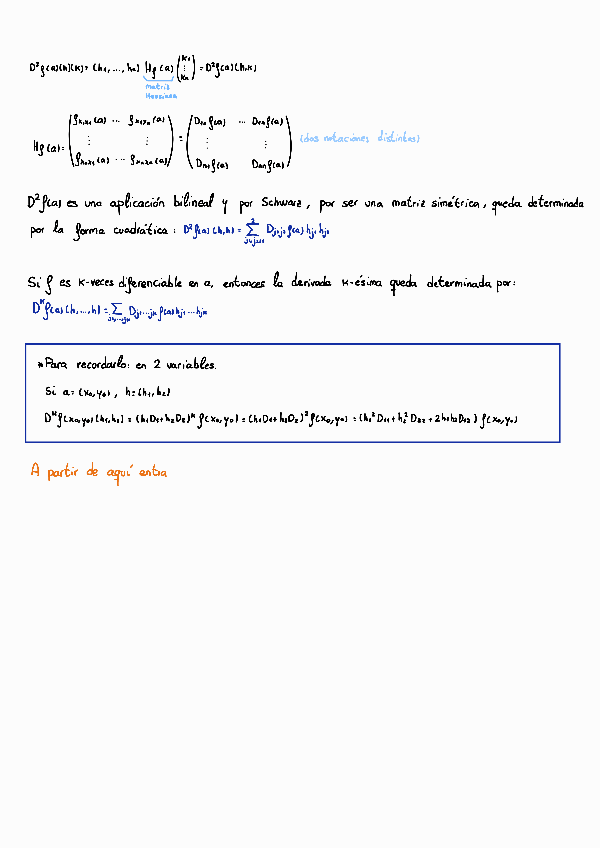 D²f(a)(h)(k) = (h₁, ..., hₙ) Hf(a) (k₁ ⋮ kₙ) = D²f(a)(h,k)
matriz
Hessiana
Hf(a) = (fx₁x₁(a) ... fx₁xₙ(a) ⋮ ⋮ fxₙx₁(a) ... fxₙxₙ(a)) = (D₁₁f(a) ... D₁ₙf(a) ⋮ ⋮ Dₙ₁f(a) Dₙₙf(a)) (dos notaciones distintas)
D²f(a) es una aplicación bilineal y por Schwarz, por ser una matriz simétrica, queda determinada
por la forma cuadrática: D²f(a)(h,h) = Σ Dj₁j₂ f(a) hj₁ hj₂
Si f es k-veces diferenciable en a, entonces la derivada k-ésima queda determinada por:
Dᵏf(a)(h,...,h) = Σ Dj₁...jₖ f(a) hj₁...hjₖ
*Para recordarlo: en 2 variables.
Si a = (x₀,y₀), h = (h₁,h₂)
Dᵏf(x₀,y₀)(h₁,h₂) = (h₁D₁+h₂D₂)ᵏ f(x₀,y₀) = (h₁D₁+h₂D₂)² f(x₀,y₀) = (h₁²D₁₁+h₂²D₂₂+2h₁h₂D₁₂) f(x₀,y₀)
A partir de aquí entra